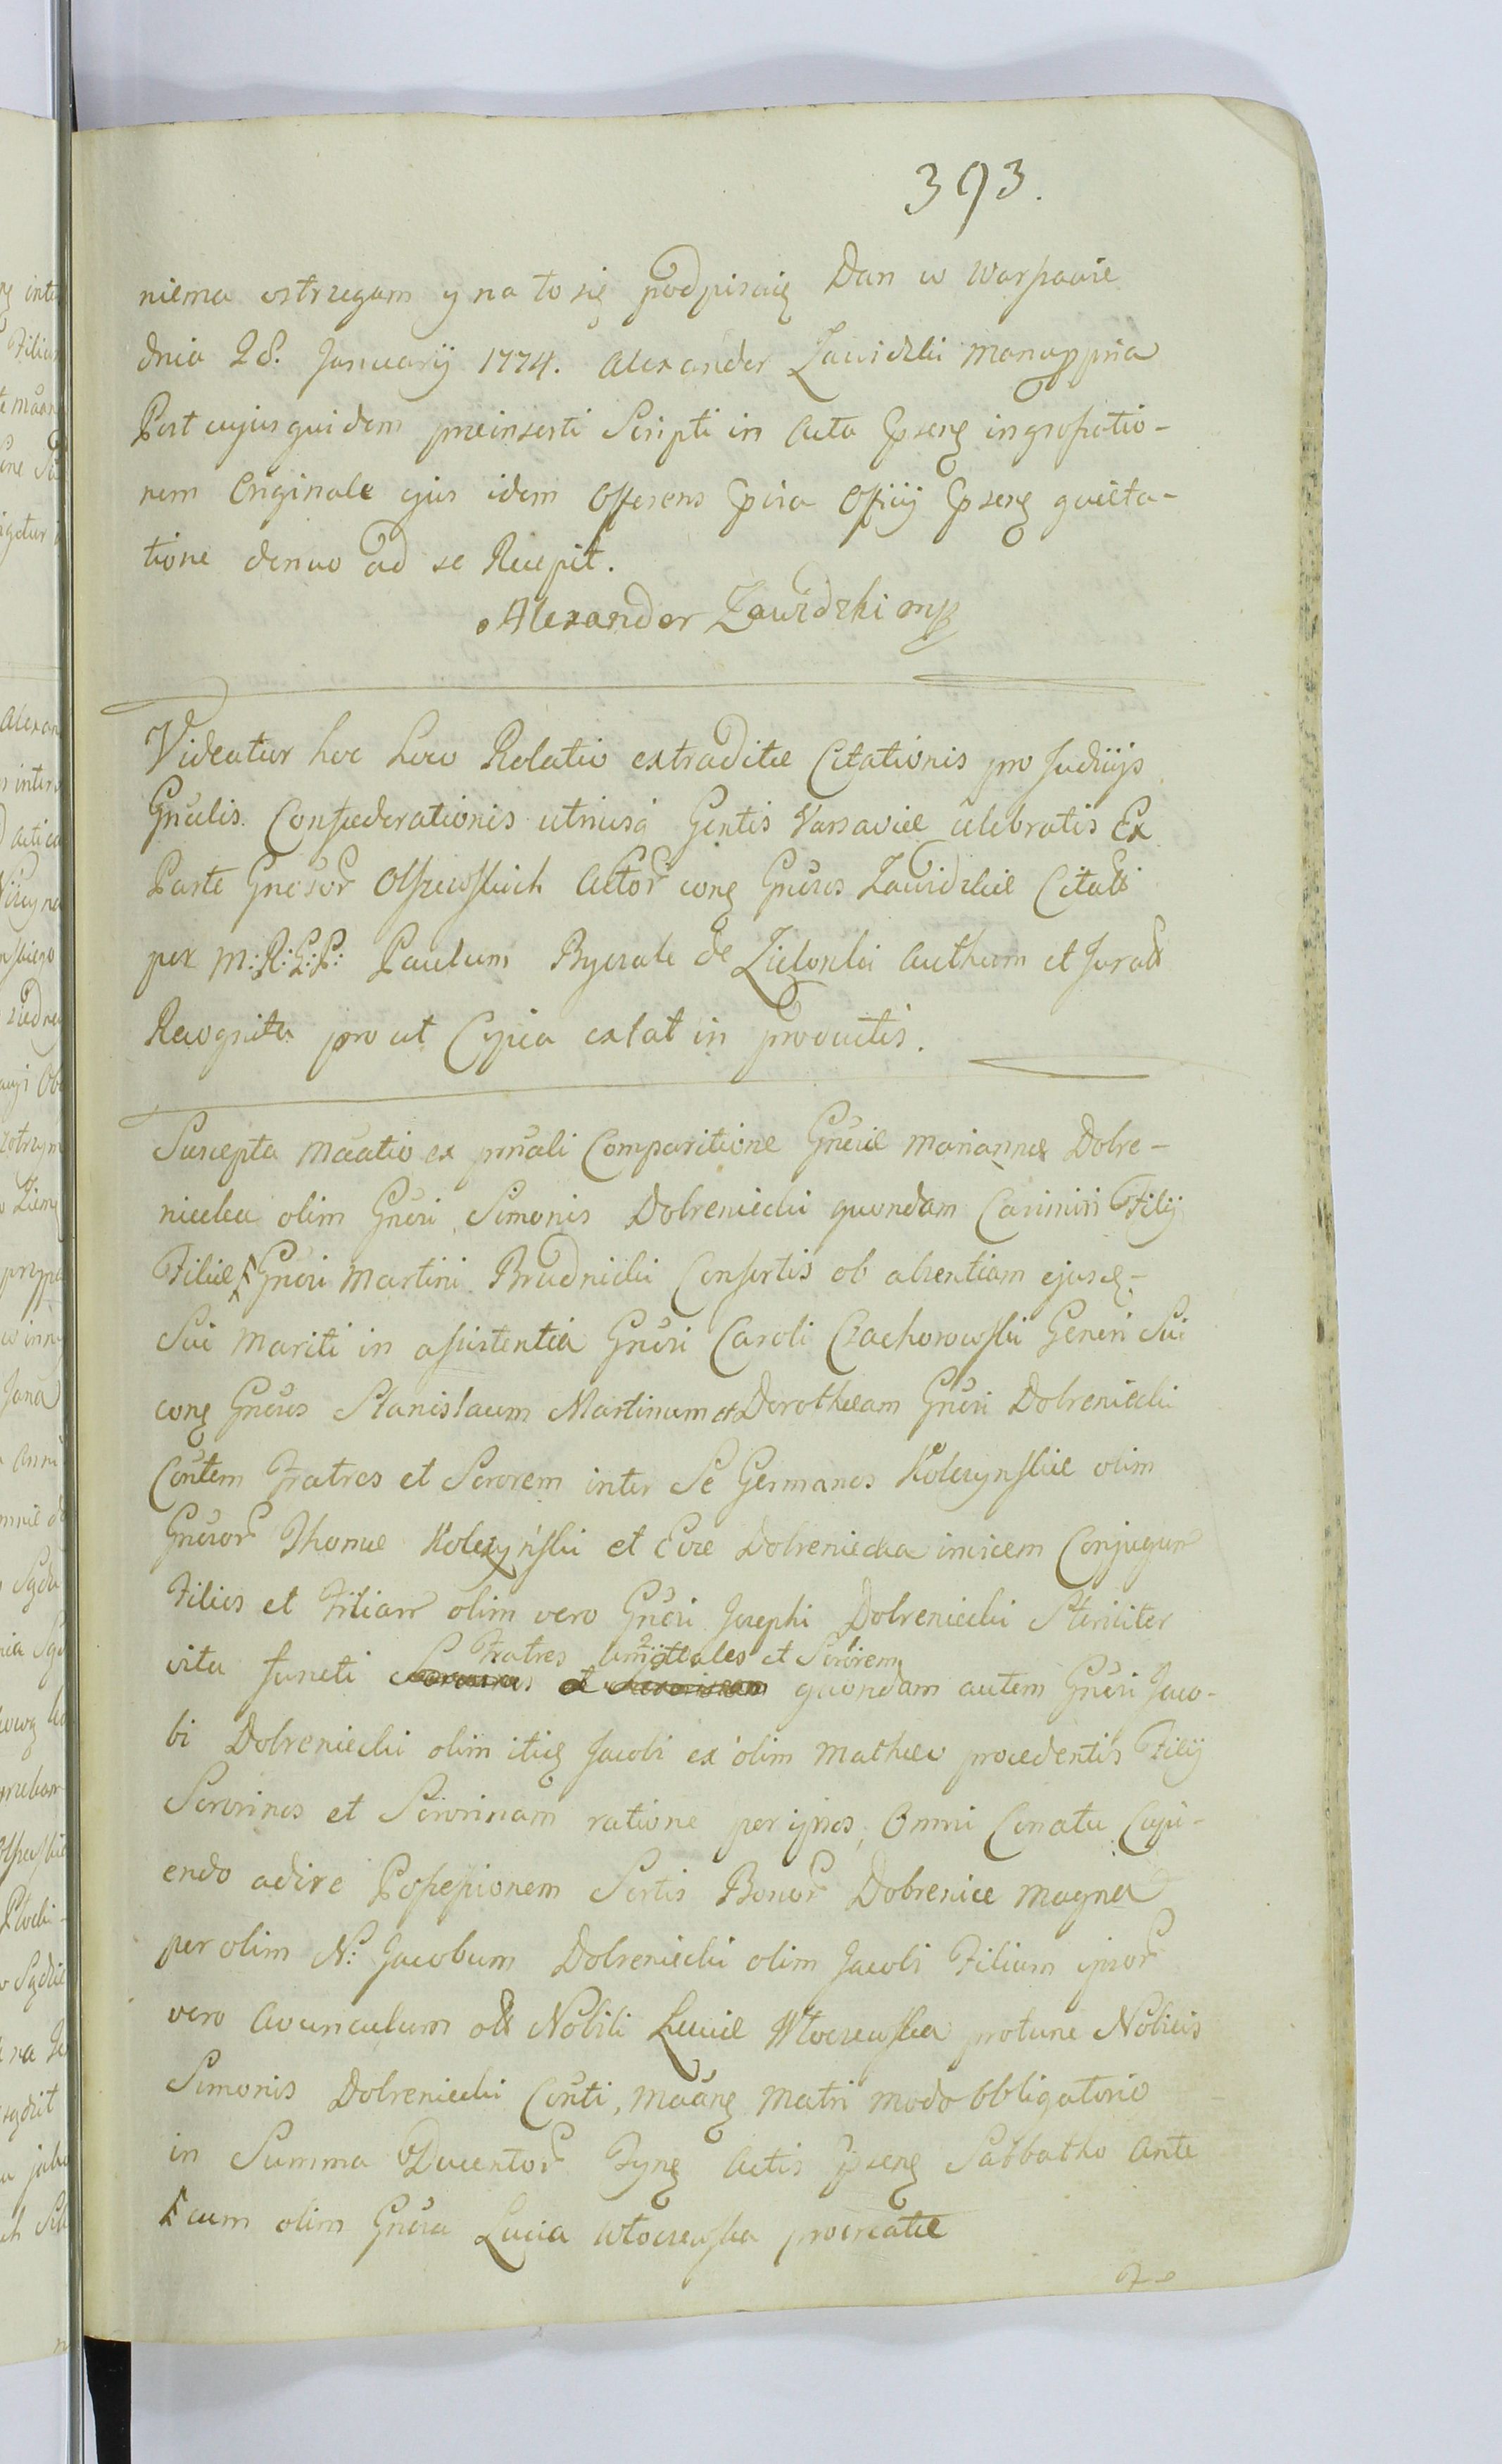 393.
niema ostrzegam y na to się podpisuię Dan w Warszawie
dnia 28. Januarij 1774. Alexander Zawidzki manuppria
Post cujus quidem præinserti Scripti in Acta Pṗsenę ingrossatio-
nem Originale ejus idem Offerens Pṗsia Officij Pṗsenę quieta-
tione denuo ad se Recepit.
Alexander Zawidzki mp
Videatur hoc Loco Relatio extraditæ Citationis pro Judicijs
Gnãlis Confœderationis utriusq Gentis Varsaviæ celebratis Ex
Parte Gnesor Olszewskich Actor conę Gnesos Zawidzkie Citatt
per M: R: G: P: Paulum Byczak de Zielonki Authem et Juratt
Recognita pro ut Copia extat in productis.
Suscepta Mãatio ex prnãli Comparitione Gnesæ Mariannæ Dobre-
niecka olim Gnesi Simonis Dobreniecki quondam Casimiri Filij
Filiæ Gnesi Martini Brudnicki Consortis ob absentiam ejusdę
Sui Mariti in assistentia Gnesi Caroli Czachorowski Generi Sui
conę Gnesos Stanislaum Martinum et Dorotheam Gnesi Dobreniecki
Contem Fratres et Sororem inter Se Germanos Kolczynskie olim
Gnesor Thomæ Kolczyński et Evæ Dobreniecka invicem Conjugum
Filios et Filiam olim vero Gnesi Josephi Dobreniecki Steriliter
Fratres Amittales et Sororem
vita functi quondam autem Gnesi Jaco-
bi Dobreniecki olim itidę Jacobi ex olim Matheo procedentis Filij
Sororinos et Sororinam ratione per ipsos, Omni Conatu Cupi-
endo adire Possessionem Sortis Bonor Dobrenice Magna
per olim N: Jacobum Dobreniecki olim Jacobi Filium ipsor
vero Avunculum ott Nobili Luciæ Włoczewska protunc Nobilis
Simonis Dobreniecki Conti, Mãanę Matri modo obligatorio
in Summa Ducentor Fynę Actis Pṗsenę Sabbatho Ante
cum olim Gnesa Lucia Włoczewska procreatæ